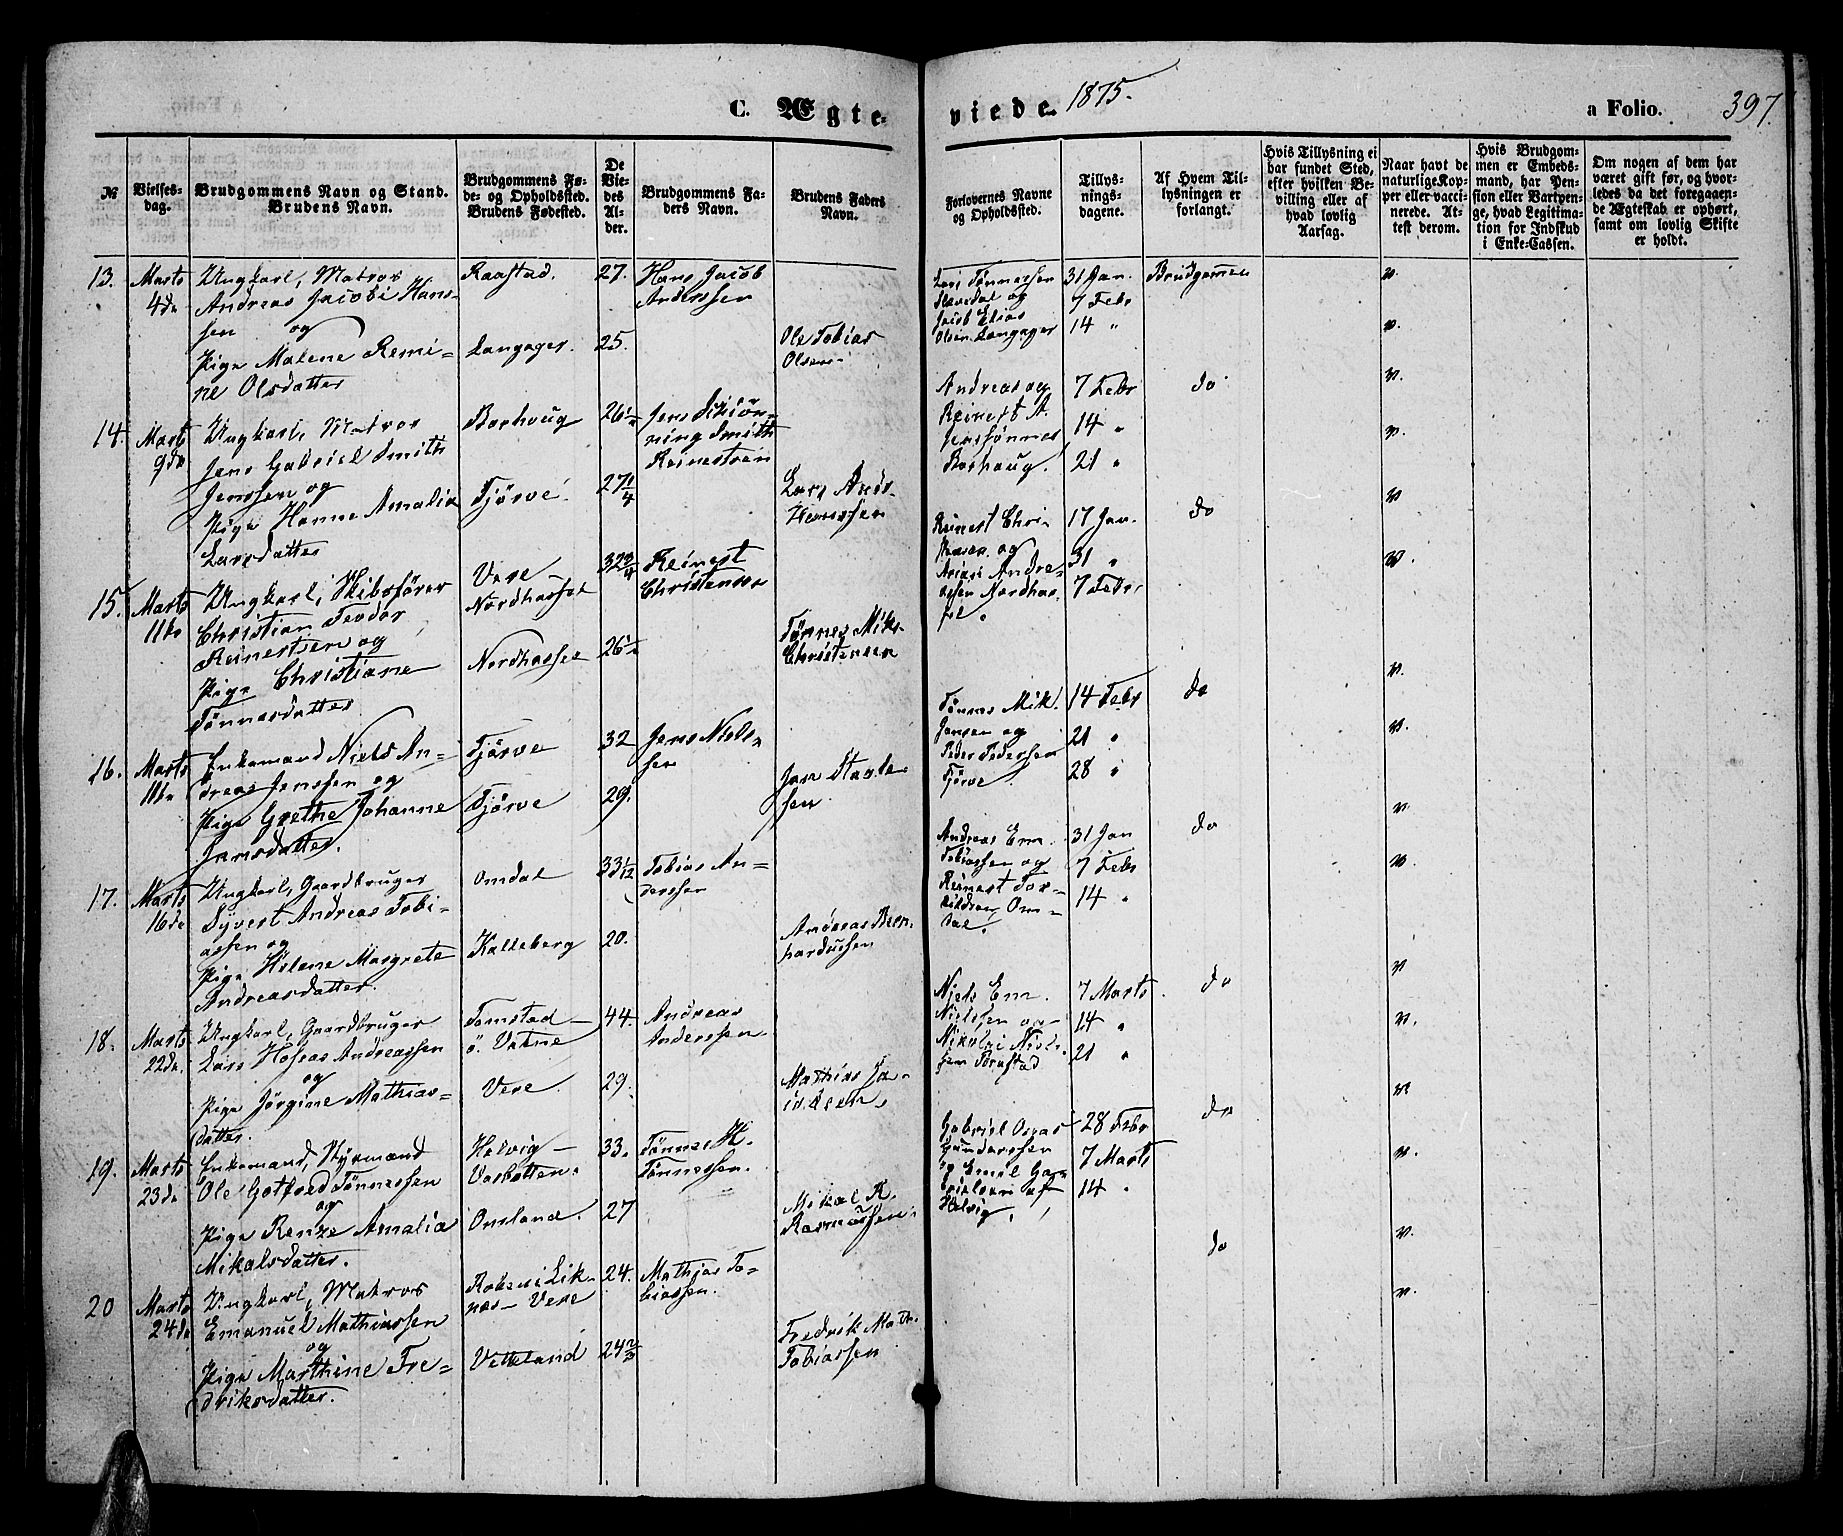 C. Ægte-
viede. 1875.
a Folio. 397.
№
Vielses-
dag.
Brudgommens Navn og Stand.
Brudens Navn.
Brudgommens Fø-
de- og Opholdssted.
Brudens Fødested.
De
Vie-
des
Al-
der.
Brudgommens Fa-
ders Navn.
Brudens Faders
Navn.
Forlovernes Navne
og Opholdssted.
Tillys-
nings-
dagene.
Af Hvem Til-
lysningen er
forlangt.
Hvis Tillysning ei
har fundet Sted,
efter hvilken Be-
villing eller af
hvad lovlig
Aarsag.
Naar havt de
naturlige Kop-
per eller vacci-
nerede. At-
test derom.
Hvis Brudgom-
men er Embeds-
mand, har Pen-
sion eller Vartpen-
ge, hvad Legitima-
tion for Indskud
i Enke-Cassen.
Om nogen af dem har
været gift før, og hvor-
ledes da det foregaaen-
de Ægteskab er ophørt,
samt om lovlig Skifte
er holdt.
13. Marts
4de
Ungkarl, Matros
Andreas Jacobi Hans-
sen og
Pige Malene Remi-
ne Olsdatter
Raastad.
Langager.
27.
25.
Hans Jacob
Anderssen
Ole Tobias
Olsen
Lars Tønnessen
og
Jacob Elias
Olsen Langager
31 Jan.
7 Febr
14 "
Brudgommen
v.
v.
14. Marts
9de
Ungkarl, Matros
Jens Gabriel Smith
Jenssen og
Pige Hanne Amalia
Larsdatter
Borhoug
Tjørve.
26½
27¼
Jens
Smith
Reinertsen
Lars Andr.
Hanssen
Andreas og
Reinert A.
Jenssønner
Borhaug.
7 Febr
14 "
21 "
do
v.
v.
15. Marts
11te
Ungkarl, Skibsfører
Christian Teodor
Reinertsen og
Pige Christiane
Tønnesdatter
Vere
Nordhassel
Nordhassel
32¾
26½
Reinert
Christensen
Tønnes Mik.
Christensen
Reinert Chri-
stensen og
Andre-
assen Nordhas-
sel.
17 Jan.
31 "
7 Febr.
do
v
v.
16. Marts
11te
Enkemand Niels An-
dreas Jenssen og
Pige Grethe Johanne
Jansdatter.
Tjørve
Tjørve
32
29.
Jens Niels-
sen
Jan
sen.
Tønnes Mik.
Jansen og
Peder Pedersen
Tjørve
14 Febr
21 "
28 "
do
v.
v.
17. Marts
16de
Ungkarl, Gaardbruger
Syvert Andreas Tobi-
assen og
Pige Helene Margrete
Andreasdatter.
Omdal
Kalleberg
33 1/12
20.
Tobias An-
derssen
Andreas Bern-
hardussen
Andreas Em.
Tobiassen og
Reinert Tor-
kildsen, Om-
dal.
31 Jan
7 Febr
14 "
do
v.
v.
18. Marts
22de.
Ungkarl, Gaardbruger
Lars Hoseas Andreassen
og
Pige Jørgine Mathias-
datter.
Tomstad
ø. Vatne
Vere
44.
29.
Andreas
Anderssen
Mathias
Niels Em.
Nielssen og
Nikolai Niels-
sen Tomstad
7 Marts
14 "
21 "
do
v
v.
19. Marts
23de
Enkemand, Styrmand
Ole Gotfred Tønnessen
og
Pige Renze Amalia
Mikalsdatter.
Helvig
Varbatten.
Omland.
33.
27
Tønnes H.
Tønnessen.
Mikal R.
Rasmussen.
Gabriel Osias
Gunderssen
og Emil Ga-
brielsen af
Helvig
28 Febr
7 Marts
14 "
do
v
v.
20 Marts
24de
Ungkarl, Matros
Emanuel Mathiassen
og
Pige Marthine Fre-
driksdatter.
Lik-
nes – Vere
Vetteland
24.
24⅔
Mathias To-
biassen.
Fredrik Math.
Tobiassen
do
v.
v.